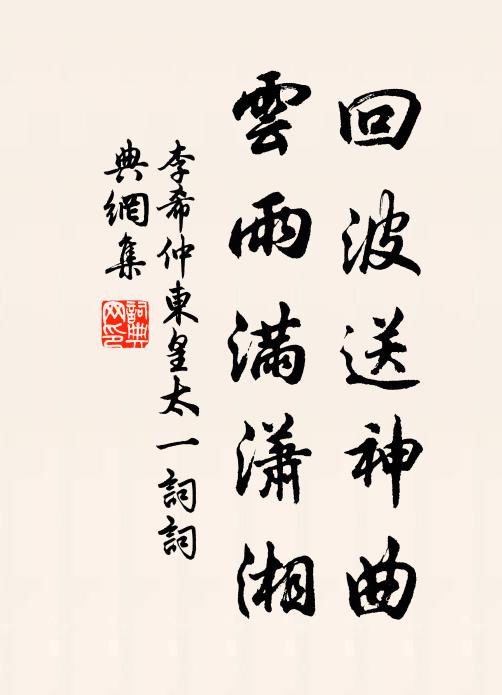 回波送神曲
雲雨滿瀟湘
李希仲東皇太一詞詞
典網集
詞典
网印